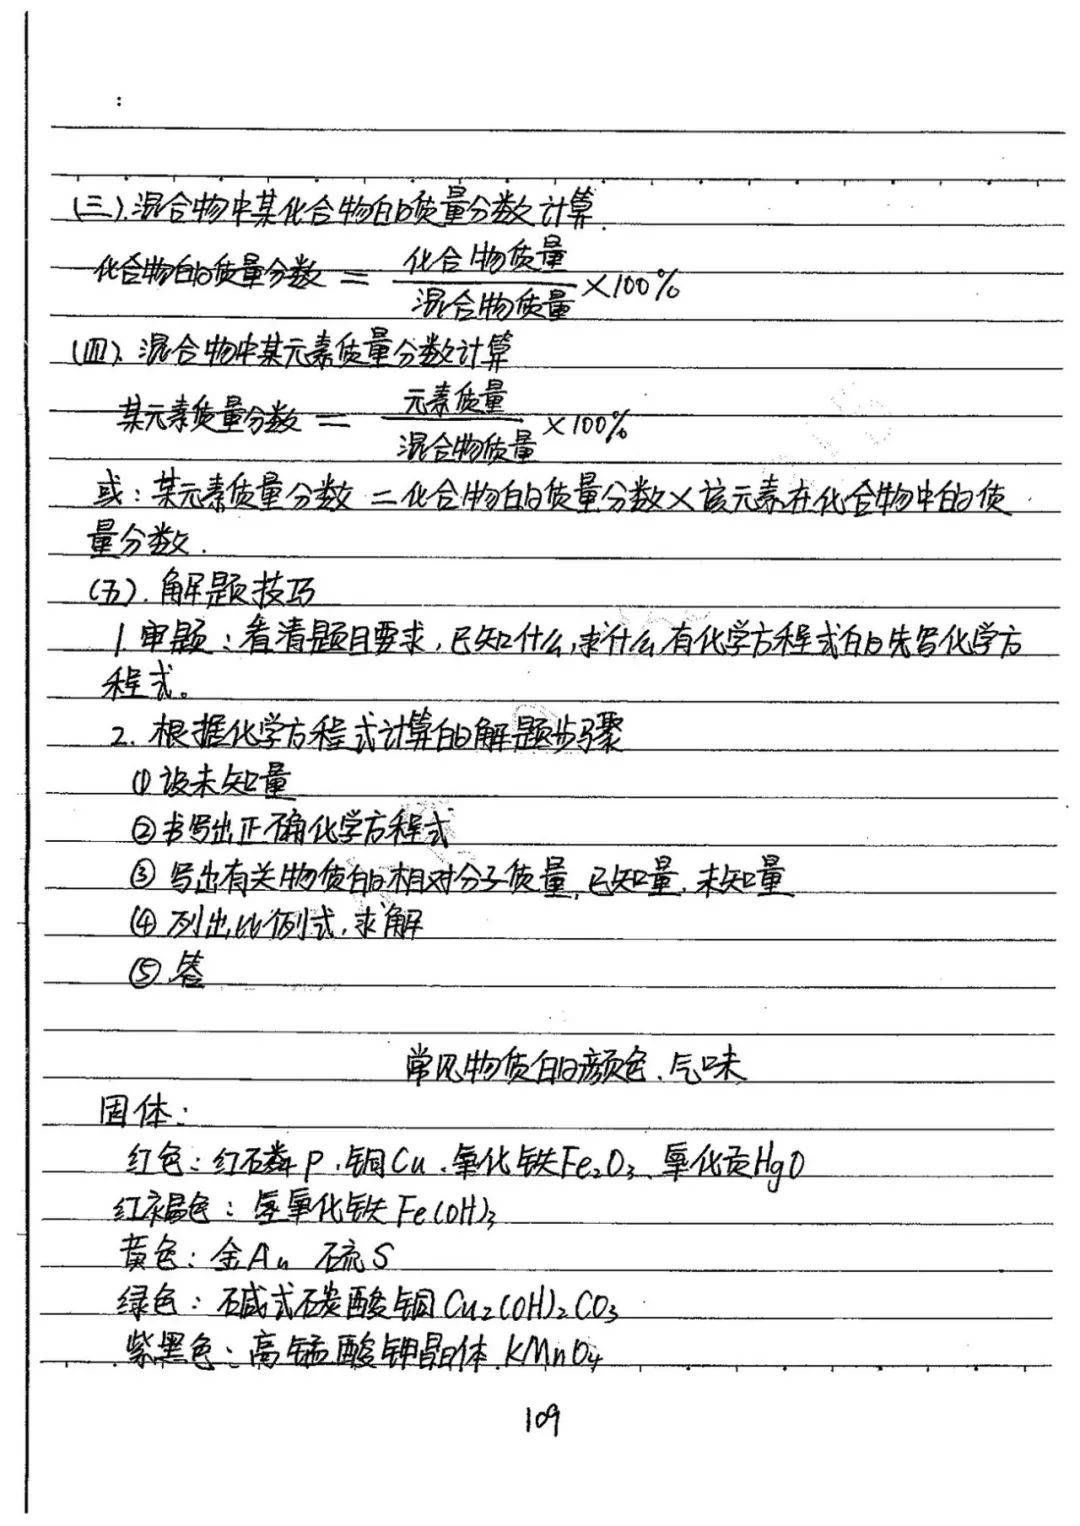 (三).混合物中某化合物的质量分数计算.
化合物的质量分数 = 化合物质量/混合物质量 ×100%
(四).混合物中某元素质量分数计算
某元素质量分数 = 元素质量/混合物质量 ×100%
或：某元素质量分数 = 化合物的质量分数×该元素在化合物中的质
量分数.
(五).解题技巧
1.审题：看清题目要求,已知什么,求什么,有化学方程式的先写化学方
程式。
2.根据化学方程式计算的解题步骤
①设未知量
②书写出正确化学方程式
③写出有关物质的相对分子质量,已知量,未知量
④列出比例式,求解
⑤答
常见物质的颜色、气味
固体：
红色：红磷P、铜Cu、氧化铁Fe₂O₃、氧化汞HgO
红褐色：氢氧化铁Fe(OH)₃
黄色：金Au 硫S
绿色：碱式碳酸铜Cu₂(OH)₂CO₃
紫黑色：高锰酸钾晶体.KMnO₄
109